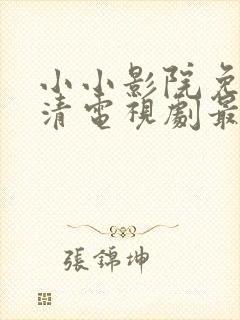 小小影院免
清電視劇最
張錦坤